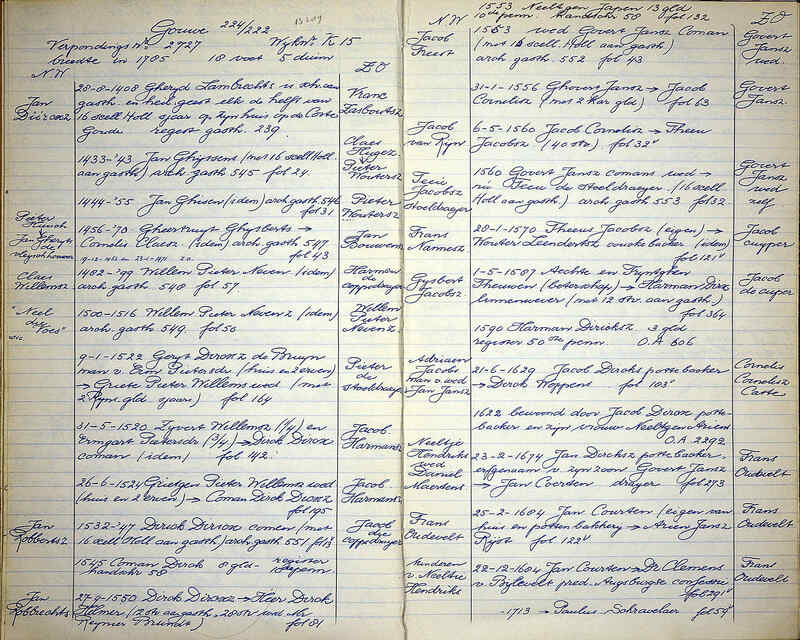 Gouwe 224/222
Verpondings No 2727 Wykno K 15
breedte in 1785 18 voet 5 duim
N.W. Z.O.
28-8-1408 Gheryd Lambrechts
Jan
gasth. en heil. geest elk de helft van
Franc
16 op zyn huis op de
Gouda regest gasth. 239.
Claes
Pieter Woutersz
1433-'43 Jan Ghyssens (met 16 scell Holl
aan gasth) arch gasth 545 fol 24
1444-'55 Jan Ghisen (iden) arch gasth 546
fol 31
Pieter
Woutersz
1456-'70 Gheertruyt Ghysberts →
Cornelis Claesz (idem) arch gasth 547
fol 43
Pieter
Jan Gheryts
de
vleyschhouwer
Jan
Bouwensz
Claes
Willemsz
1482-'99 Willem Pieter Neven (idem)
arch gasth 548 fol 57
Harmen
de
"Neel
Voes"
1500-1516 Willem Pieter Nevenz (idem)
arch. gasth 549. fol 50
Willem
Pieter
Nevenz
9-1-1522 Geryt Dircxz de Bruyn
man v. Erm Pietersdr (huis en 2 erven)
→ Griete Pieter Willems wed (met
2 Ryns gld sjaars) fol 164
Pieter
de
stoeldraeyer
31-5-1520 Zyvert Willemsz (1/4) en
Ermgart Pietersdr (3/4) → Dirck Dircxz
coman (idem) fol 142
Jacob
Harmansz
26-6-1524 Grietgen Pieter Willemsz wed
(huis en 2 erven) → Coman Dirck Dircxz
fol 195
Jacob
Harmansz
Jan
Robbertsz
1532-'47 Dirck Dircxz comen (met
16 scell Holl aan gasth) arch gasth 551 fol 13
Jacob
dye
1545 Coman Dirck 8 gld - register
handschr 58 10e penn.
Jan
Robbrechts
27-9-1550 Dirck Dircxz → Heer Dirck
fol 81
1553 Neeltgen Japen 13 gld
10de penn. handschr 58 fol 132
N.W. Z.O.
Jacob
Freest
1553 wed Govert Jansz Coman
(met 16 scell. Holl aan gasth)
arch gasth. 552 fol 43
Govert
Jansz
wed.
31-1-1556 Ghovert Jansz → Jacob
Cornelisz (met 2 Kar gld) fol 63
Govert
Jansz.
Jacob
van Ryn
6-5-1560 Jacob Cornelisz → Theeu
Jacobsz (40 stv) fol 32v
Teeu
Jacobsz
stoeldraeyer
1560 Govert Jansz comans wed →
nu Teeu de stoeldraeyer (16 scell
Holl aan gasth) arch gasth 553 fol 32
Govert
Jansz
wed
self
Frans
Nannesz
28-1-1570 Theeus Jacobsz (eigen) →
Wouter Leendertsz couckebacker (idem)
fol 121v
Jacob
cuyper
Gysbert
Jacobsz.
1-5-1587 Aechte en Fryntgien
Theeuwen (boterschop) → Harman Dircx
linnenwever (met 12 stv. aan gasth)
fol 364
Jacob
de cuper
1590 Harman Dircksz 3 gld
register 50ste penn. O.A 606
Adriaen
Jacobs
man v wed
Jan Jansz
21-6-1629 Jacob Dircks pottebacker
→ Dirck Woppens. fol 103v
Cornelis
Cornelisz
Catte
1622 bewoond door Jacob Dircxz potte-
backer en zyn vrouw Neeltgen Ariens
O.A 2292
Neeltje
Hendriks
wed
Daniel
Maertens
23-2-1674 Jan Dircksz pottebacker
erfgenaam v. zyn zoon Govert Jansz
→ Jan Coerten drayer fol 273
Frans
Oudevelt
Frans
Oudevelt
25-2-1684 Jan Courten (eigen van
huis en pottenbakkery → Arien Jansz
Ryst fol 122v
Frans
Oudevelt
kinderen
v. Neeltie
Hendriks
22-12-1684 Jan Courten → Ds Clemens
v. Bylevelt pred. Augsburgse confessie
fol 291v
Frans
Oudevelt
-1713 → Paulus Schravelaer fol 59v